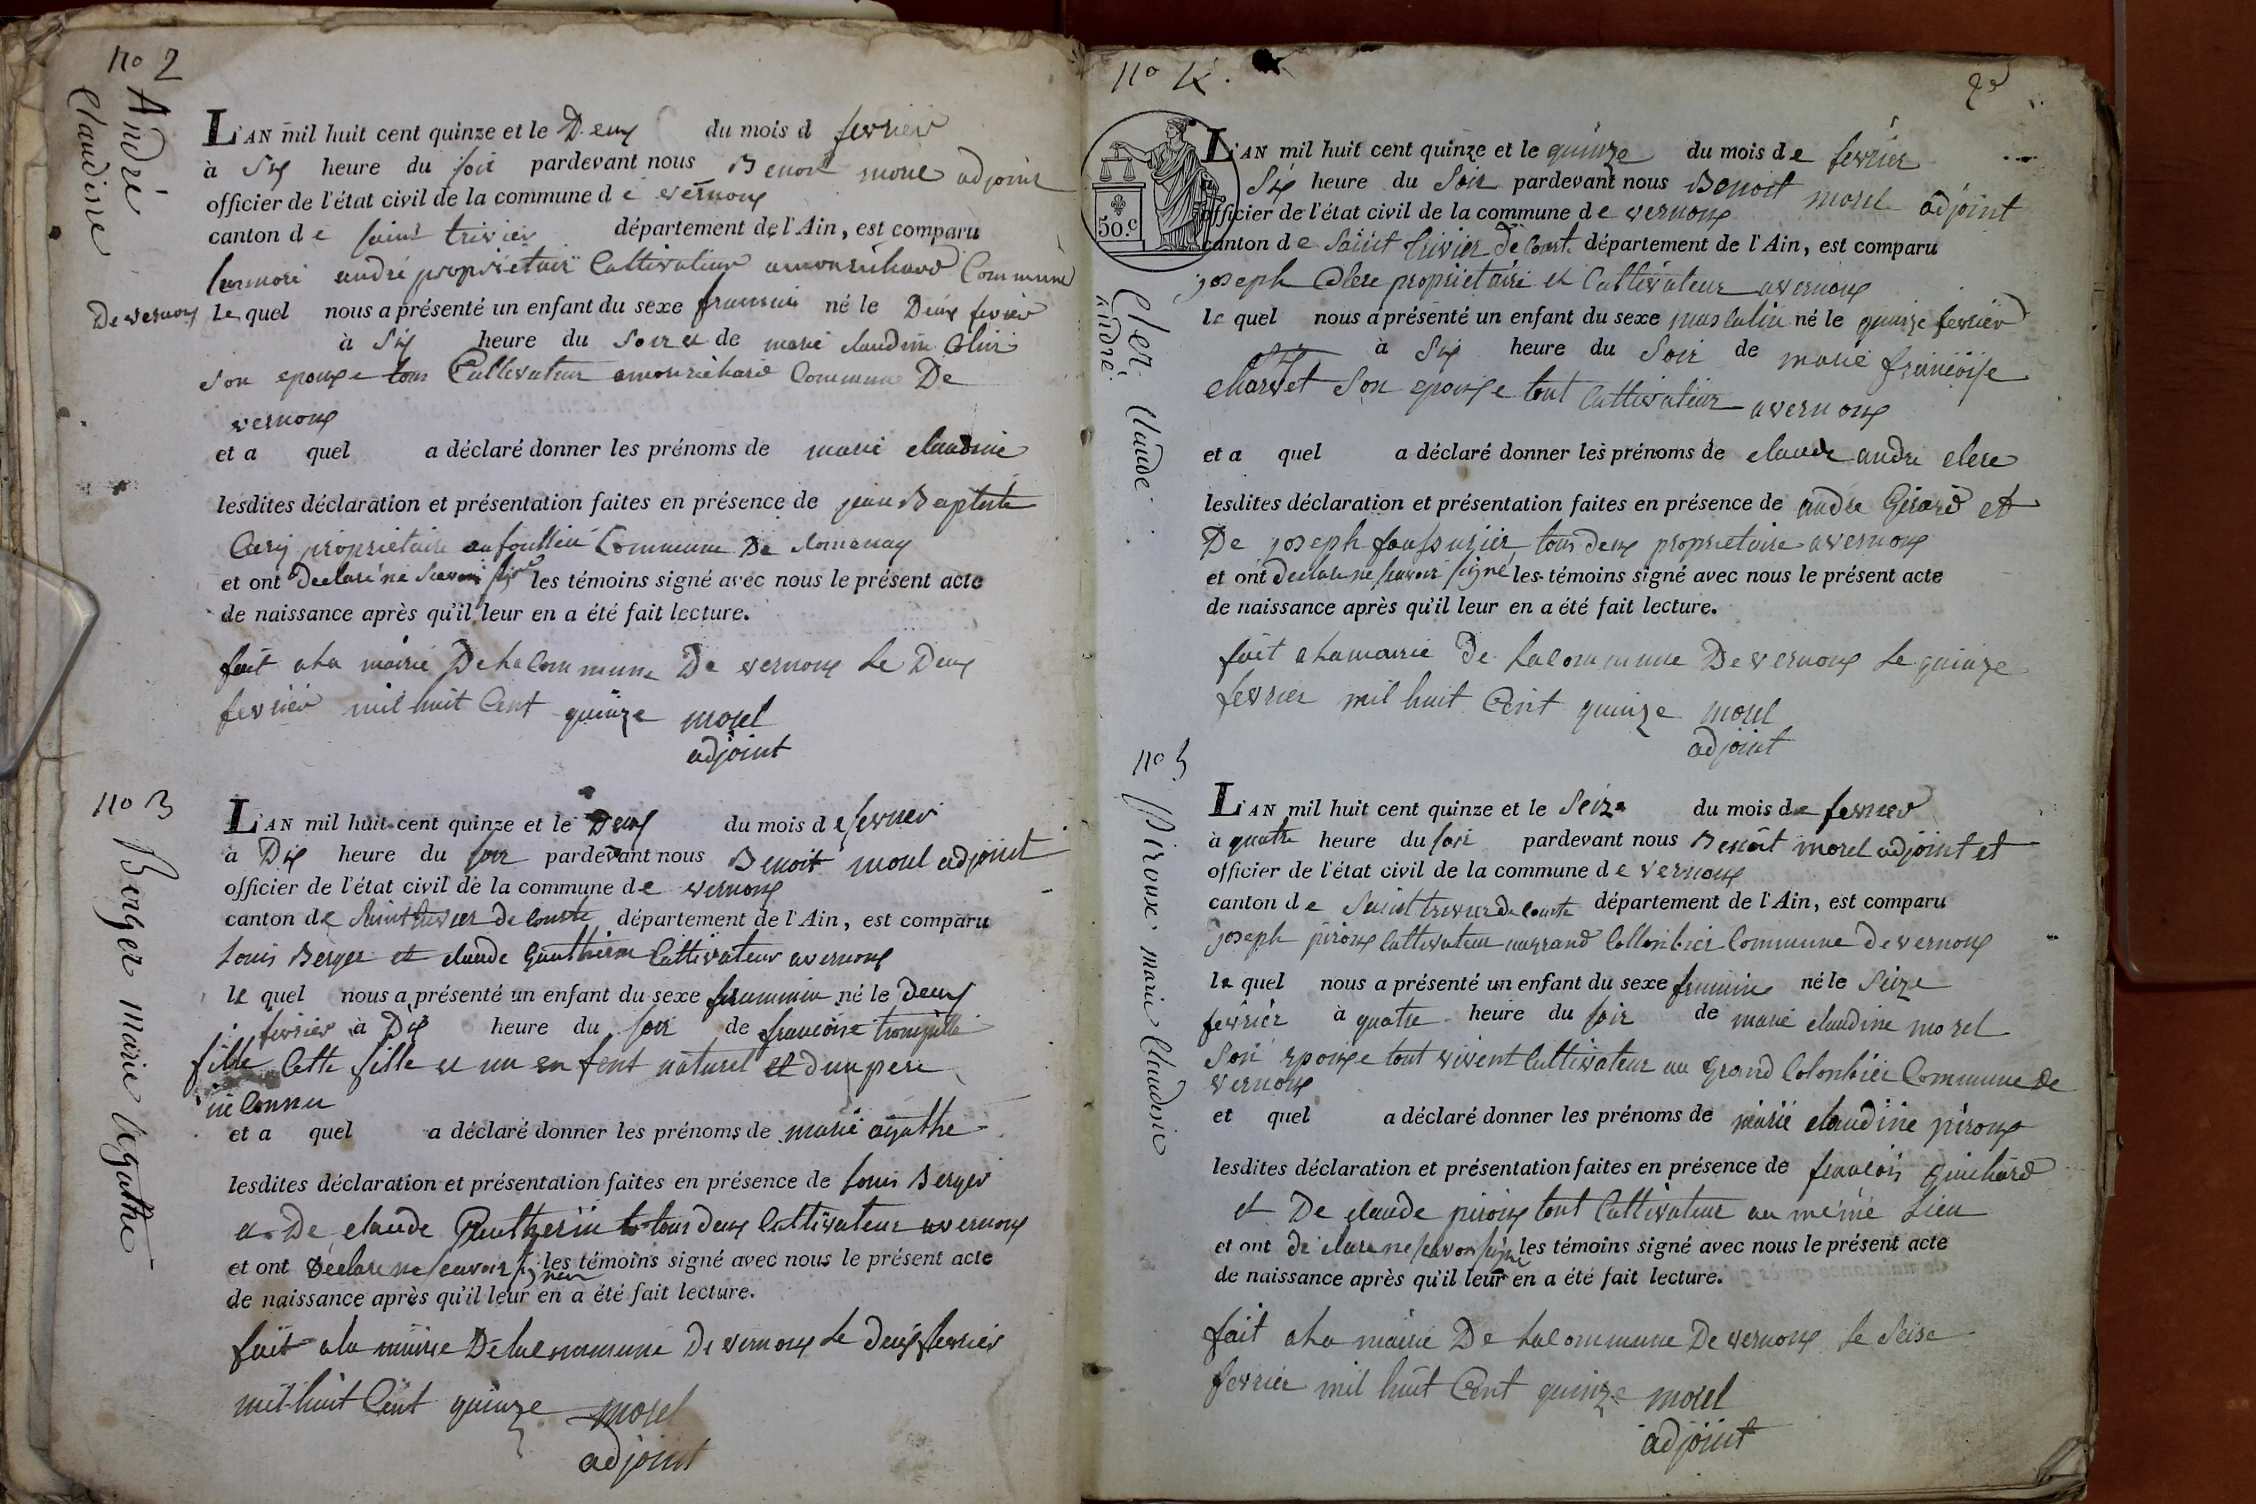 no 2
André
Claudine
L'AN mil huit cent quinze et le Deux du mois d fevrier
à Six heure du soir pardevant nous Benoit morel adjoint
officier de l'état civil de la commune d e vernoux
canton d e saint trivier département de l'Ain, est comparu
andré proprietaire Cultivateur amonrichard Commune
De vernoux Le quel nous a présenté un enfant du sexe feminin né le Deux fevrier
à Six heure du Soir et de marie claudine
son epouse tous Cultivateur amonrichard Commune De
vernoux
et a quel a déclaré donner les prénoms de marie claudine
lesdites déclaration et présentation faites en présence de jean Baptiste
proprietaire Commune De Romenay
et ont Declaré ne Scavoir signé les témoins signé avec nous le présent acte
de naissance après qu'il leur en a été fait lecture.
fait a La mairie De La Commune De vernoux Le Deux
fevrier mil huit Cent quinze morel
adjoint
no 3
Berger marie agathe
L'AN mil huit cent quinze et le Deux du mois d e fevrier
à Dix heure du soir pardevant nous Benoit morel adjoint
officier de l'état civil de la commune d e vernoux
canton d e Saint trivier de Courte département de l'Ain, est comparu
Louis Berger et claude Gautherin Cultivateur avernoux
le quel nous a présenté un enfant du sexe feminin né le deux
fevrier à Dix heure du soir de francoise
fille Cette fille et un enfent naturel et dun pere
in Connu
et a quel a déclaré donner les prénoms de marie agathe
lesdites déclaration et présentation faites en présence de Louis Berger
et De claude Gautherin tous deux Cultivateur avernoux
et ont Déclare ne scavoir signer les témoins signé avec nous le présent acte
de naissance après qu'il leur en a été fait lecture.
fait a la mairie De la Commune De vernoux Le deux fevrier
mil huit Cent quinze morel
adjoint
no 4.
2e
50.c
Cler. Claude.
André.
L'AN mil huit cent quinze et le quinze du mois d e fevrier
a Six heure du Soir pardevant nous Benoit morel adjoint
officier de l'état civil de la commune d e vernoux
canton d e Saint trivier de Court. département de l'Ain, est comparu
joseph Clere proprietaire et Cultivateur avernoux
le quel nous a présenté un enfant du sexe masculin né le quinze fevrier
à Six heure du Soir de marie francoise
Charvet Son epouse tout Cultivateur avernoux
et a quel a déclaré donner les prénoms de claude andre clere
lesdites déclaration et présentation faites en présence de andre Girard et
De joseph tous deux proprietaire avernoux
et ont declare ne scavoir signé les témoins signé avec nous le présent acte
de naissance après qu'il leur en a été fait lecture.
fait a La mairie De La Commune De vernoux Le quinze
fevrier mil huit Cent quinze morel
adjoint
no 5
Piroux. marie Claudine
L'AN mil huit cent quinze et le Seize du mois d e fevrier
à quatre heure du soir pardevant nous Benoit morel adjoint et
officier de l'état civil de la commune d e vernoux
canton d e Saint trivier de Courte département de l'Ain, est comparu
joseph piroux Cultivateur augrand Collonbier Commune De vernoux
le quel nous a présenté un enfant du sexe feminine né le Seize
fevrier à quatre heure du soir de marie claudine morel
Son epouse tout vivent Cultivateur au Grand Colonbier Commune de
vernoux
et quel a déclaré donner les prénoms de marie claudine piroux
lesdites déclaration et présentation faites en présence de francois Guichard
et De claude piroux tout Cultivateur au même Lieu
et ont declare ne scavoir signé les témoins signé avec nous le présent acte
de naissance après qu'il leur en a été fait lecture.
fait a La mairie De La Commune De vernoux Le Seise
fevrier mil huit Cent quinze morel
adjoint